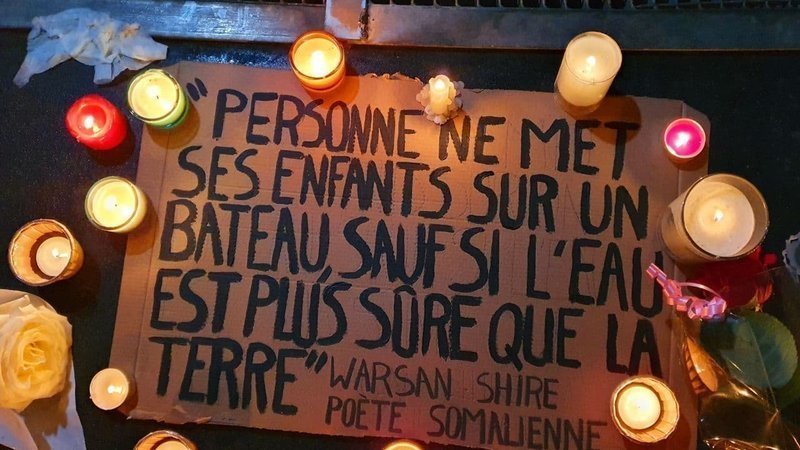 "PERSONNE NE MET
SES ENFANTS SUR UN
BATEAU, SAUF SI L'EAU
EST PLUS SÛRE QUE LA
TERRE" WARSAN SHIRE
POÈTE SOMALIENNE